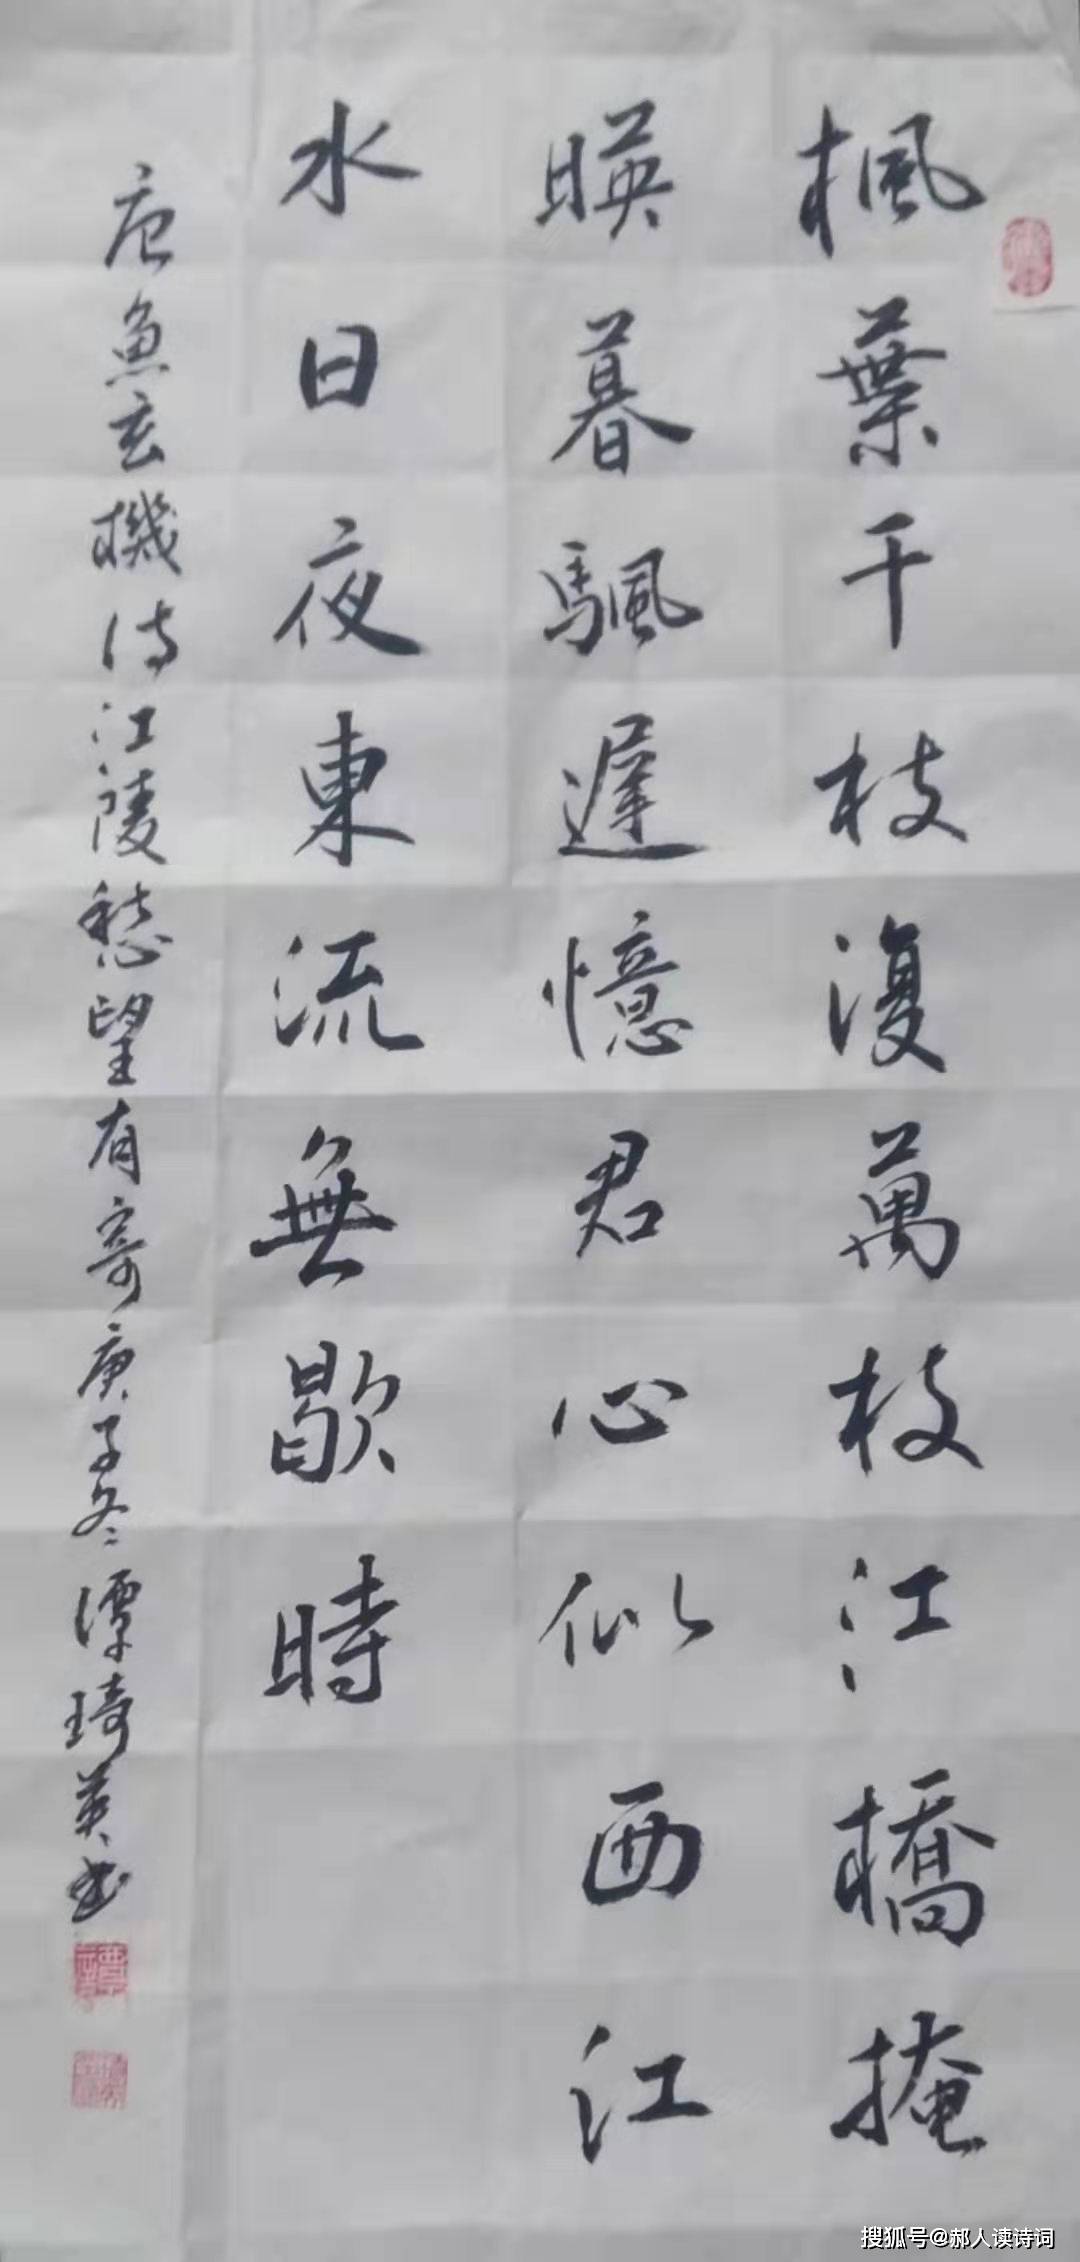 楓葉千枝復萬枝江橋掩
暎暮颿遲憶君心似西江
水日夜東流無歇時
唐魚玄機诗江陵愁望有寄庚子冬譚琦英书
搜狐号@郝人读诗词